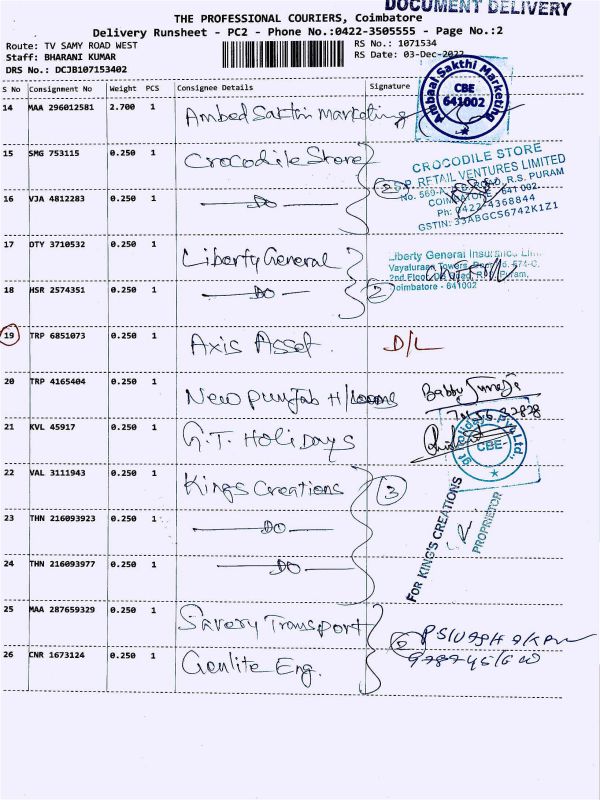 DOCUMENT DELIVERY
THE PROFESSIONAL COURIERS, Coimbatore
Delivery Runsheet - PC2 - Phone No.:0422-3505555 - Page No.:2
Route: TV SAMY ROAD WEST RS No.: 1071534
Staff: BHARANI KUMAR RS Date: 03-Dec-2022
DRS No.: DCJB107153402
S No Consignment No Weight PCS Consignee Details Signature
14 MAA 296012581 2.700 1 Ambed Sakthi Marketing
Ambaal Sakthi Marketing
CBE
641002
15 SMG 753115 0.250 1 Crocodile Store
CROCODILE STORE
S.P. RETAIL VENTURES LIMITED
R.S. PURAM
COIMBATORE - 641 002.
Ph: 0422-4368844
GSTIN: 33ABGCS6742K1Z1
16 VJA 4812283 0.250 1 DO 2
17 DTY 3710532 0.250 1 Liberty General
Liberty General Insurance
Vayaturaan Towers,
2nd Floor, Puram,
Coimbatore - 641002
18 HSR 2574351 0.250 1 DO 2
19 TRP 6851073 0.250 1 Axis Asset. D/L
20 TRP 4165404 0.250 1 New Punjab H/Looms
21 KVL 45917 0.250 1 G.T. Holidays
CBE
22 VAL 3111943 0.250 1 Kings Creations 3
FOR KING'S CREATIONS
PROPRIETOR
23 THN 216093923 0.250 1 DO
24 THN 216093977 0.250 1 DO
25 MAA 287659329 0.250 1 Savery Transport 2
26 CNR 1673124 0.250 1 Genlite Eng.